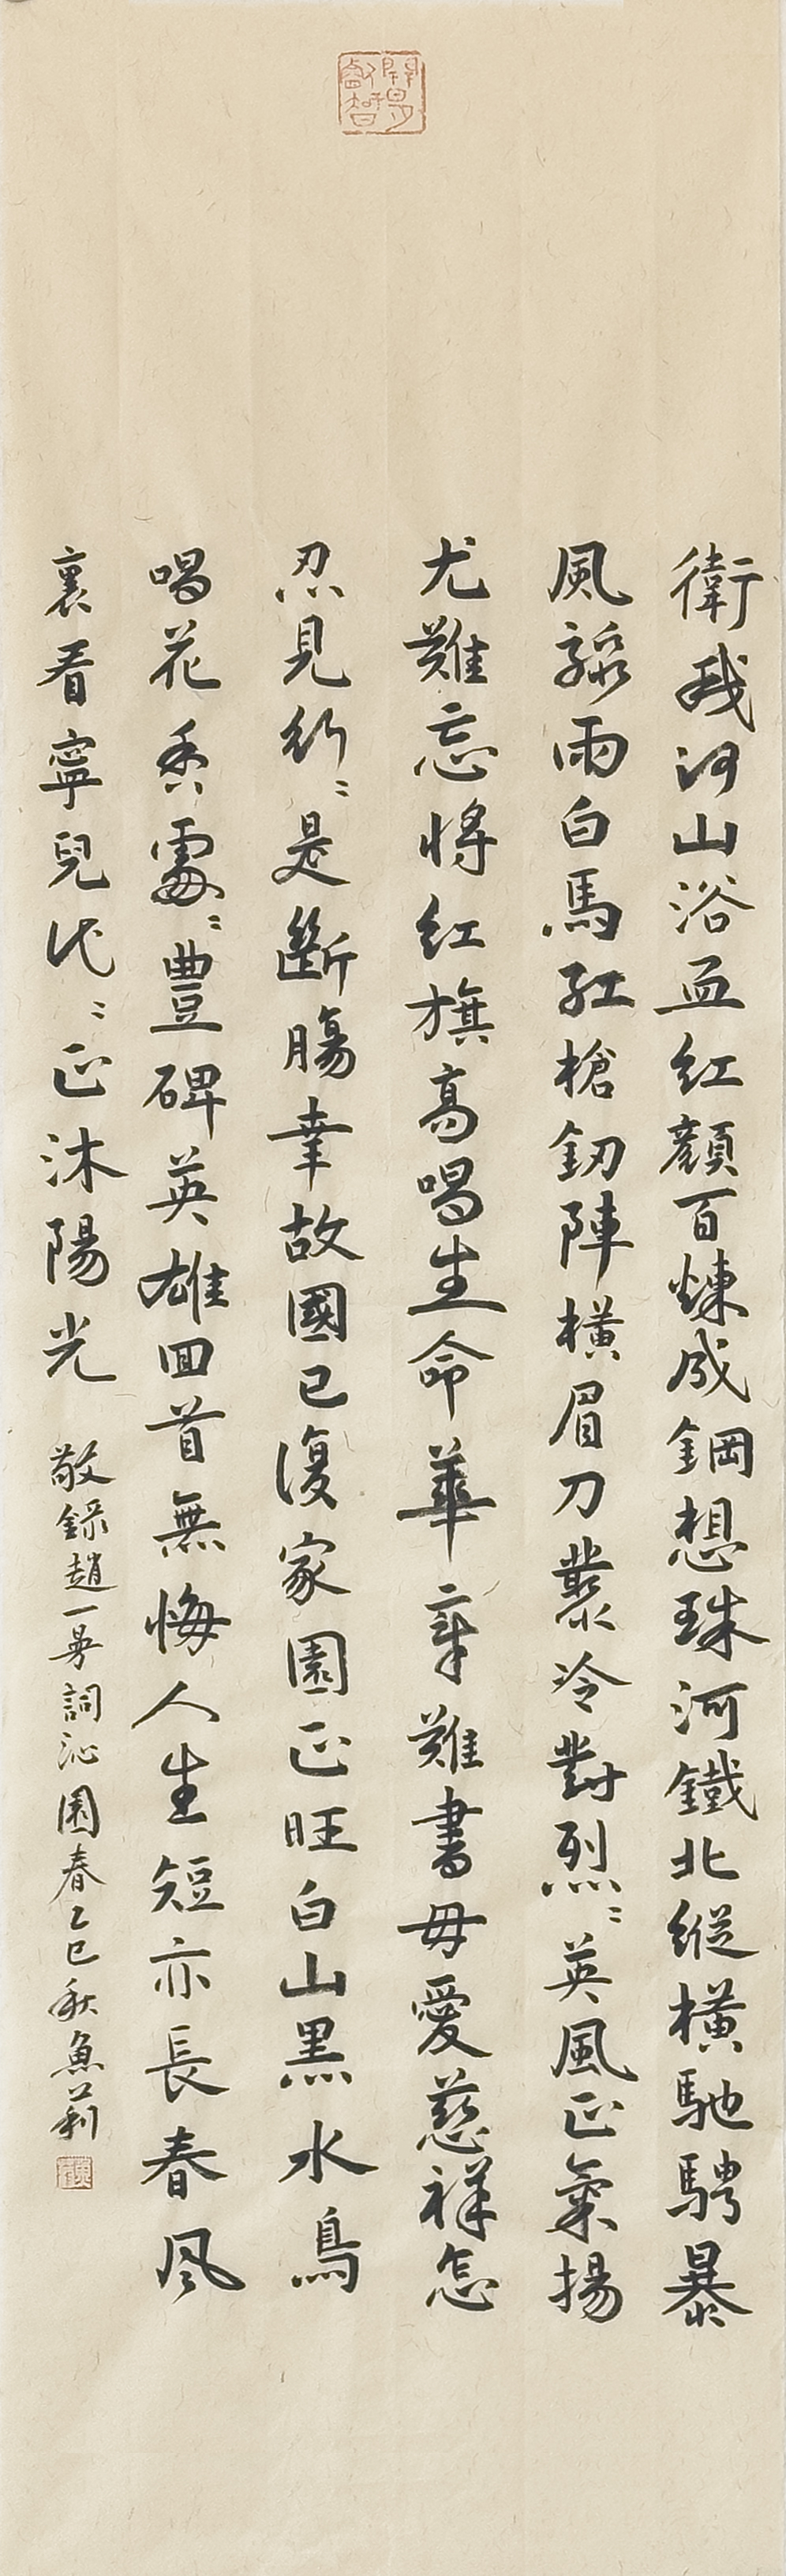 衛我河山浴血紅顏百煉成鋼想珠河鐵北縱橫馳騁暴
風驟雨白馬紅槍劍陣橫眉刀叢冷對烈〻英風正氣揚
尤難忘將紅旗高唱生命華章難書毋愛慈祥怎
忍見行〻是斷腸幸故國已復家園正旺白山黑水鳥
唱花香處〻豐碑英雄回首無悔人生短亦長春風
裏看寧兒代〻正沐陽光
敬錄趙一曼詞沁園春乙巳秋魚莉